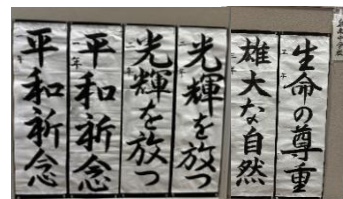 生命の尊重
雄大な自然
光輝を放つ
光輝を放つ
平和祈念
平和祈念